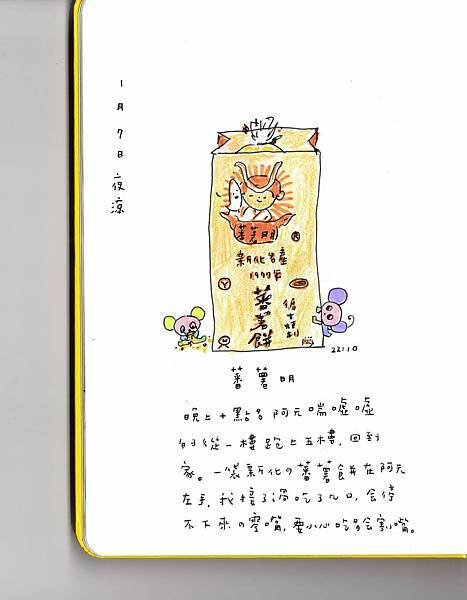 1月7日夜涼
蕃薯明
R
新化名產
1977年
蕃薯餅
22:10
蕃薯明
晚上十點多阿元喘噓噓
的從一樓跑上五樓,回到
家。一袋新化の蕃薯餅在阿元
左手,我接了過吃了几口,会停
不下來の零嘴,要小心吃易会割嘴。